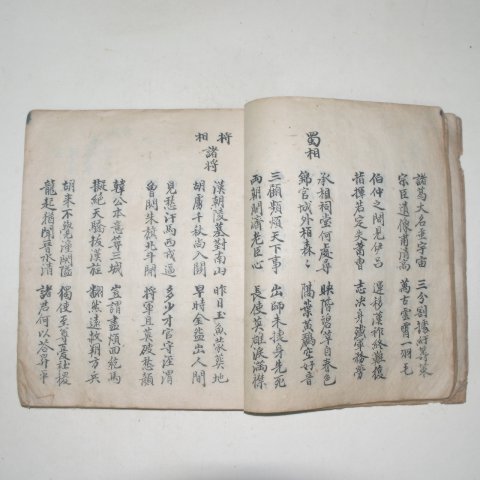 諸葛大名垂宇宙 三分割據紆籌策
宗臣遺像肅清高 萬古雲霄一羽毛
伯仲之間見伊呂 運移漢祚終難復
指揮若定失蕭曹 志決身殲軍務勞
蜀相
承相祠堂何處尋 映階碧草自春色
錦官城外柏森々 隔葉黃鸝空好音
三顧頻煩天下事 出師未捷身先死
兩朝開濟老臣心 長使英雄淚滿襟
將相
諸將
漢朝陵墓對南山 昨日玉魚蒙葬地
胡虜千秋尚入關 早時金盌出人間
見愁汗馬西戎逼 多少才官守涇渭
曾閃朱旗北斗閒 將軍且莫破愁顏
韓公本意築三城 豈謂盡煩回紇馬
擬絕天驕拔漢旌 翻然遠救朔方兵
胡來不覺潼關隘 獨使至尊憂社稷
龍起猶聞晉水清 諸君何以答昇平